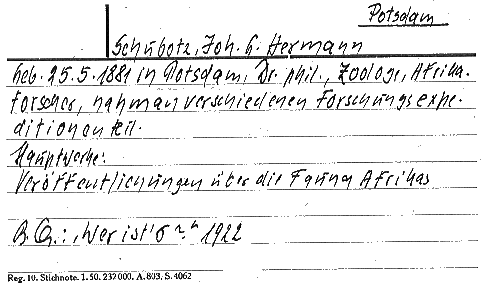 Potsdam
Schubotz, Joh. G. Hermann
Geb. 25.5.1881 in Potsdam, Dr. phil., Zoologe, Afrika-
forscher, nahm an verschiedenen Forschungsexpe-
ditionen teil.
Hauptwerke:
Veröffentlichungen über die Fauna Afrikas
B. Q.: „Wer ist's?" 1922
Reg. 10. Stichnote. 1. 50. 232000. A. 803. S. 4062